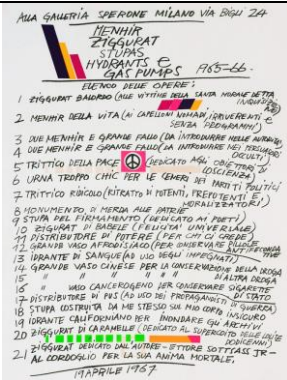 ALLA GALLERIA SPERONE MILANO VIA BIGLI 24
MENHIR
ZIGGURAT
STUPAS
HYDRANTS &
GAS PUMPS 1965-66.
ELENCO DELLE OPERE:
1 ZIGGURAT BALORDO (ALLE VITTIME DELLA SANTA MORALE DETTA
INQUISIZIONE)
2 MENHIR DELLA VITA (AI CAPELLONI NOMADI, IRRIVERENTI E
SENZA PROGRAMMI)
3 DUE MENHIR E GRANDE FALLO (DA INTRODURRE NELLE
4 DUE MENHIR E GRANDE FALLO (DA INTRODURRE NEI PERSUASORI
OCCULTI)
5 TRITTICO DELLA PACE (DEDICATO AGLI OBIETTORI DI
COSCIENZA)
6 URNA TROPPO CHIC PER LE CENERI DEI PARTITI POLITICI
7 TRITTICO RIDICOLO (RITRATTO DI POTENTI, PREPOTENTI E
MORALIZZATORI)
8 MONUMENTO DI MERDA ALLE PATRIE
9 STUPA DEL FIRMAMENTO (DEDICATO AI POETI)
10 ZIGGURAT DI BABELE (FELICITÀ UNIVERSALE)
11 DISTRIBUTORE DI PUS (PER CHI CI CREDE)
12 GRANDE VASO AFRODISIACO (PER CONSERVARE PILLOLE ANTI
13 IDRANTE DI SANGUE (AD USO DEGLI IMPEGNATI)
14 GRANDE VASO CINESE PER LA CONSERVAZIONE DELLA DROGA
15 " " " " DI ALTRA DROGA
16 VASO CANCEROGENO PER CONSERVARE SIGARETTE
DI STATO
17 DISTRIBUTORE DI PUS (AD USO DEI PROPAGANDISTI DI GUERRA)
18 STUPA COSTRUITA DA ME STESSO SUL MIO CORPO INSICURO
19 IDRANTE CALIFORNIANO PER INONDARE GLI ARCHIVI
20 ZIGGURAT DI CARAMELLE (DEDICATO AL SUPERCONTO DELLE
DODICENNI)
21 ZIGGURAT DEDICATO DALL'AUTORE - ETTORE SOTTSASS JR -
AL CORDOGLIO PER LA SUA ANIMA MORTALE.
19 APRILE 1967